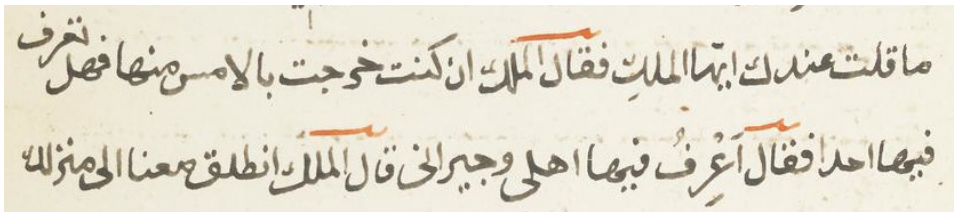 ما قلت عندك ايّها الملكِ فقال الملك ان كنت خرجت بالامس منها فهل تعرف
فيها احدا فقال اَعْرِفُ فيها اهلى وجيرانى قال الملك انطلق معنا الى منزلك